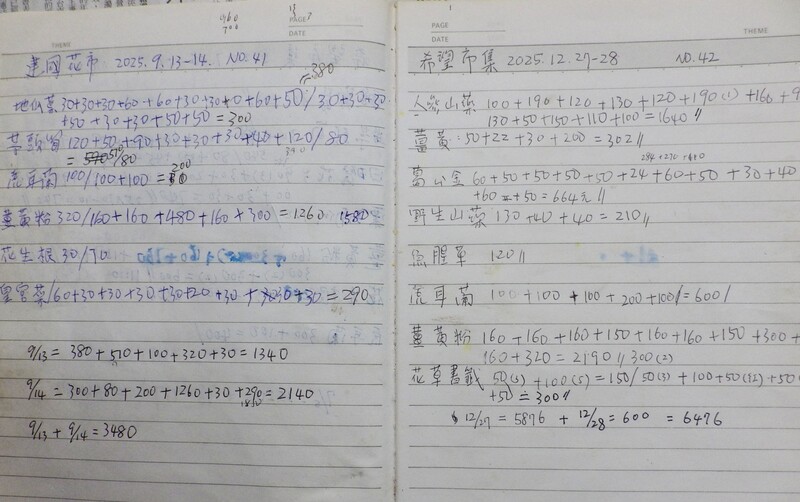 960
700
PAGE 7
DATE
THEME
建國花市 2025.9.13-14. NO.41
380
地瓜葉30+30+30+60+60+30+30+0+60+50/30+30+30
+50+30+30+50+50=300
芋頭 120+50+90+30+30+30+40+120/80
= 510/80
200
虎耳菌 100/100+100=
薑黃粉 320/160+160+480+160+300=1260 1580
花生根 30/70
皇宮菜/60+30+30+30+30+20+30+30+30=290
9/13=380+510+100+320+30=1340
9/14=300+80+200+1260+30+290=2140
1850
9/13+9/14=3480
PAGE
DATE
THEME
希望市集 2025.12.27-28 NO.42
人參山藥 100+190+120+130+120+190(1)+160+9
130+50+150+110+100=1640//
薑黃:50+22+30+200=302//
284+270+110
葛公金 60+50+50+50+50+24+60+50+30+40
+60+50=664元//
野生山藥 130+40+40=210//
魚腥草 120//
虎耳菌 100+100+100+200+100/=600/
薑黃粉 160+160+160+150+160+160+150+300+
160+320=2190// 300(2)
花草書籤 50(5)+100(5)=150/50(3)+100+50(12)+50
+50=300//
$ 12/27=5876+12/28=600=6476